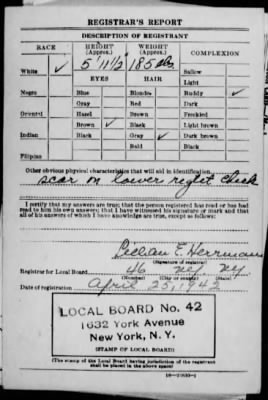 REGISTRAR'S REPORT
DESCRIPTION OF REGISTRANT
RACE HEIGHT (Approx.) WEIGHT (Approx.) COMPLEXION
White ✓ 5' 11½ 185 lbs. Sallow
EYES HAIR Light
Negro Blue Blonde Ruddy ✓
Gray Red Dark
Oriental Hazel Brown Freckled
Brown ✓ Black Light brown
Indian Black Gray ✓ Dark brown
Bald Black
Filipino
Other obvious physical characteristics that will aid in identification
scar on lower right cheek
I certify that my answers are true; that the person registered has read or has had
read to him his own answers; that I have witnessed his signature or mark and that
all of his answers of which I have knowledge are true, except as follows:
Lillian E. Herrman
(Signature of registrar)
Registrar for Local Board 46 NY NY
(Number) (City or county) (State)
Date of registration April 25, 1942
LOCAL BOARD No. 42
1632 York Avenue
New York, N. Y.
(STAMP OF LOCAL BOARD)
(The stamp of the Local Board having jurisdiction of the registrant
shall be placed in the above space)